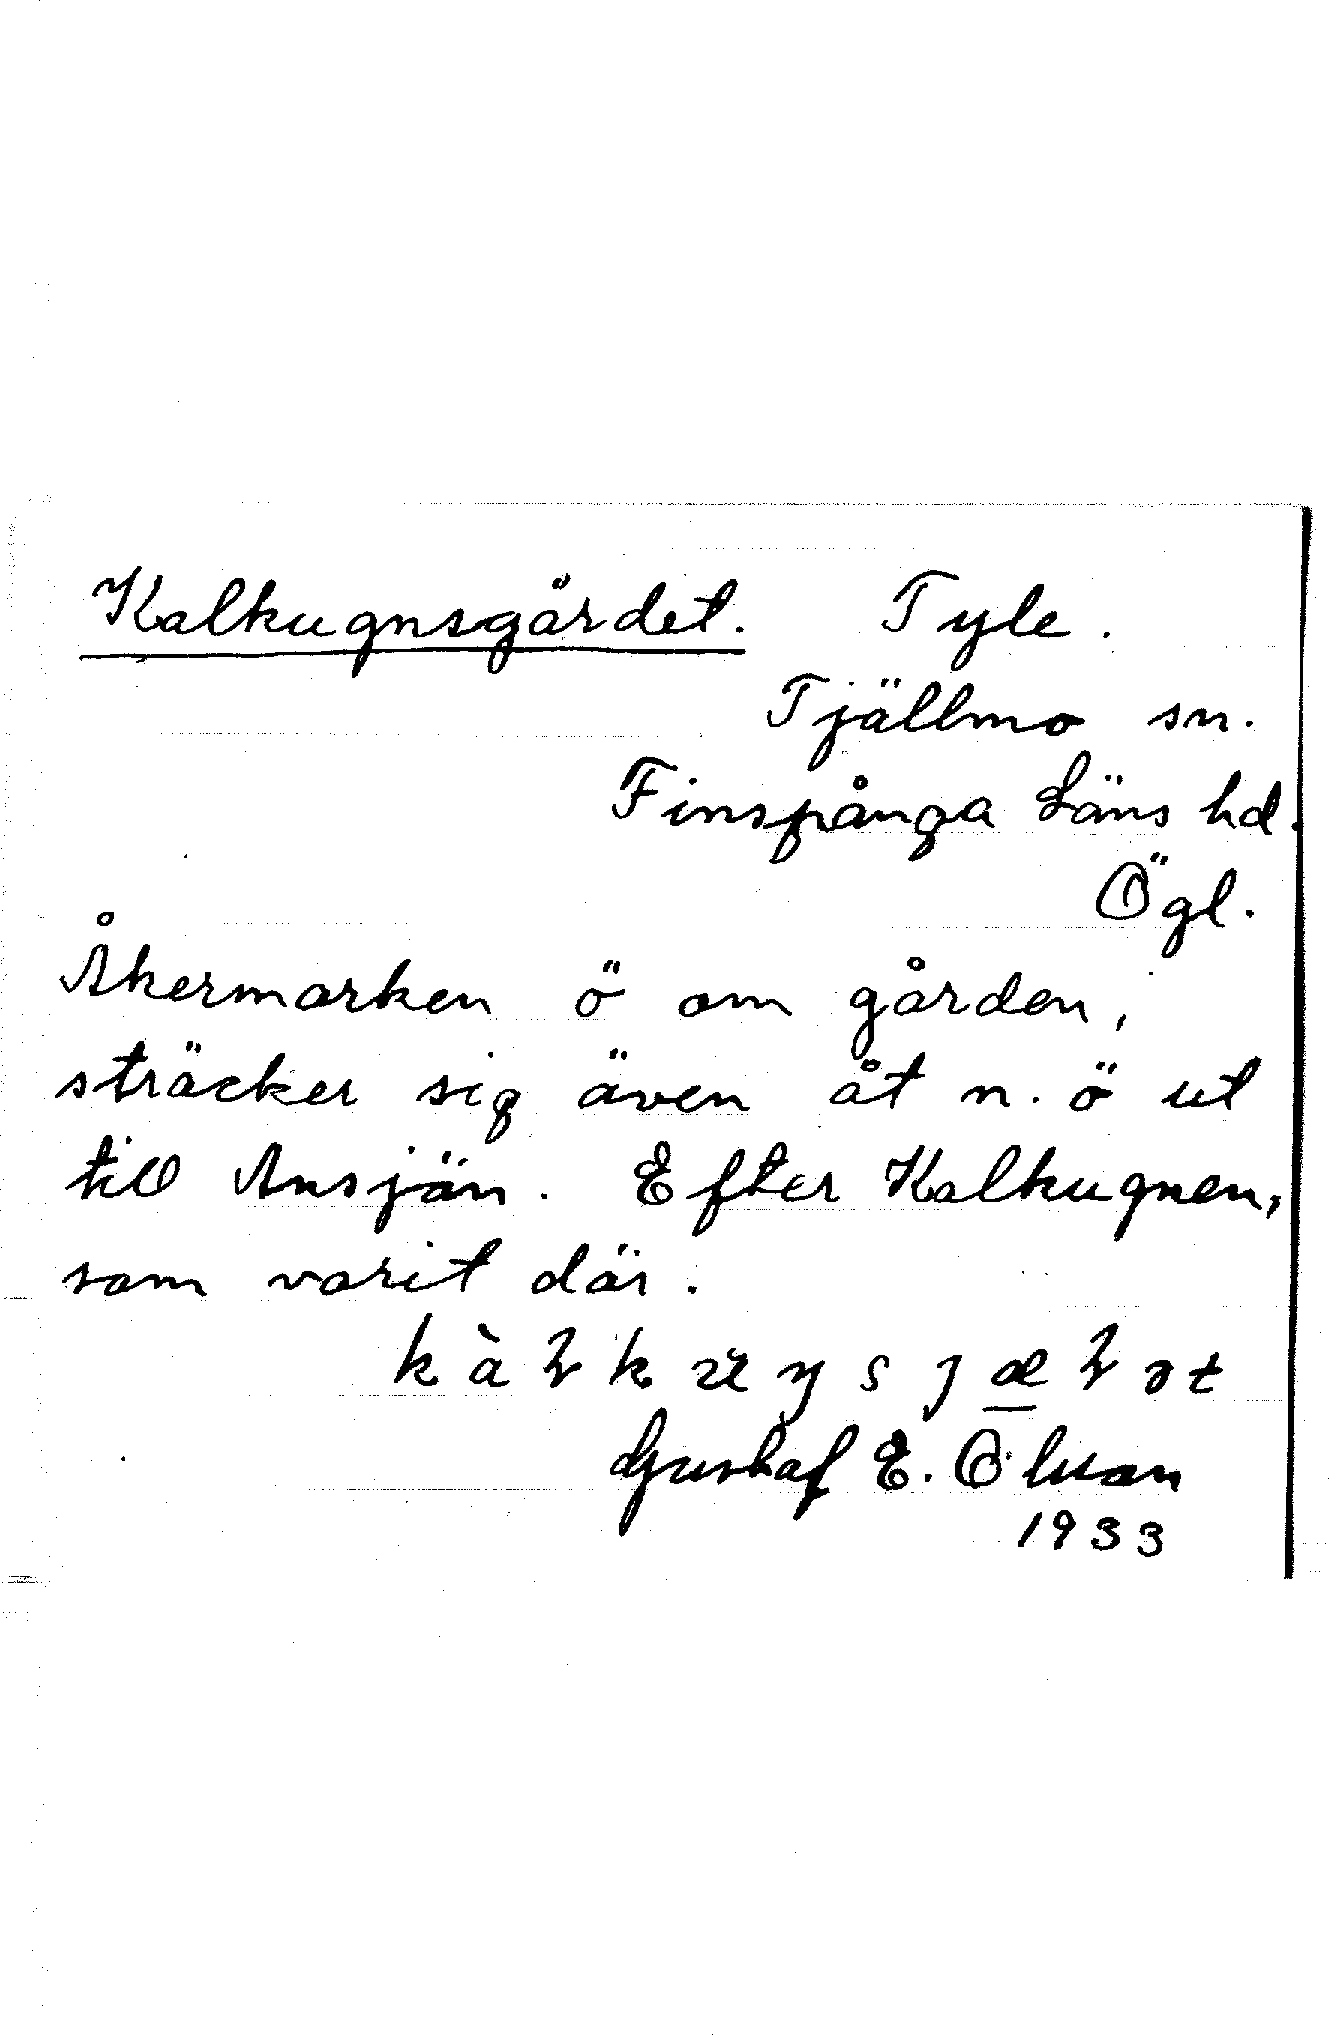 Kalkugnsgärdet. Tyle.
Tjällmo sn.
Finspånga Läns hd.
Ögl.
Åkermarken ö om gården,
sträcker sig även åt n. ö ut
till Ansjön. Efter Kalkugnen,
som varit där.
Gustaf E. Olsson
1933